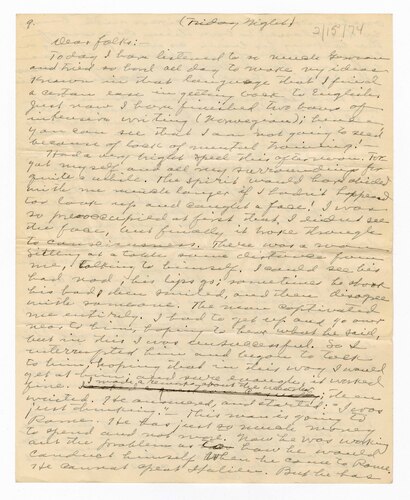 9.
(Friday Night)
2/15/24
Dear folks:-
Today I have listened to so much German
and tried so hard all day to make my ideas
known in that language that I find
a certain ease in getting back to English.
Just now I have finished two hours of
intensive writing (Norwegian); hence
you can see that I am not going to seed
because of lack of mental training!
Had a very bright spell this afternoon. For-
got myself and all my surroundings for
quite a while. The spirit would have abided
with me much longer if I hadn't happened
to look up and caught a face! I was
so preoccupied at first that I didn't see
the face, but finally it broke through
to consciousness. There was a man
sitting at a table some distance from
me, talking to himself. I could see his
head nod, his lips go; sometimes he shook
his head, then smiled, and then disagreed
with someone. The man captivated
me entirely. I had to get up and go over
near to him, hoping to hear what he said,
but in this I was unsuccessful. So I
interrupted him and began to talk
to him hoping that in this way I would
get at him, and sure enough, it worked
fine. I made a remark about the weather, then
waited. He answered, and started: "I was
just thinking" - This man is going to
Rome. He has just so much money
to spend and not more. Now he was working
out the problem as to how he would
conduct himself when he came to Rome.
He cannot speak Italian. But he has